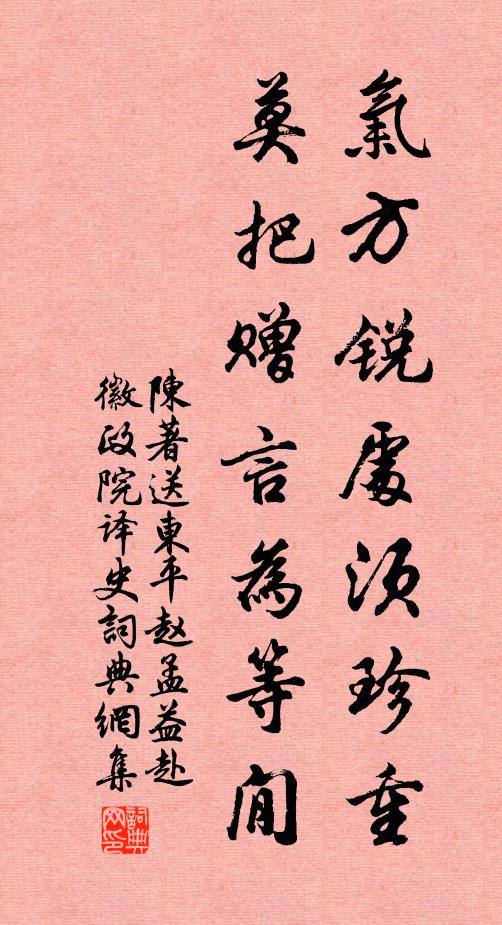 氣方锐處須珍重
莫把赠言為等閒
陳著送東平赵孟益赴
徽政院译史詞典網集
詞典网印